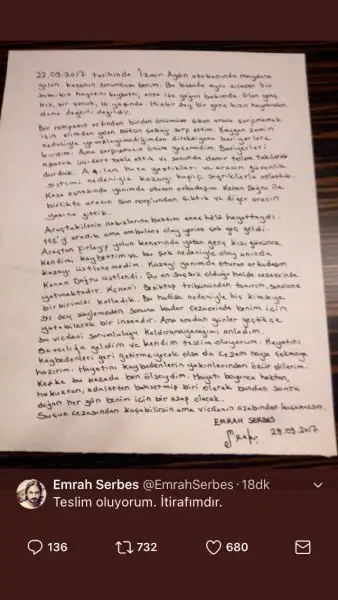 22.09.2017 tarihinde İzmir-Aydın otobanında meydana
gelen kazanın sorumlusu benim. Bu kazada aynı aileden bir
baba-kız hayatını kaybetti, anne ise yoğun bakımda. Ölen genç
kız, bir çocuk, 16 yaşında. Hiçbir şey bir genç kızın hayatından
daha değerli değildir.
Bir rampanın ardından birden önümüze çıkan araca çarpmamak
için elimden gelen bütün çabayı sarf ettim. Kaygan zemin
nedeniyle yavaşlayamadığımdan direksiyonu bariyerlere
kırdım. Ama çarpmamızın önüne geçemedim. Bariyerleri
aşarak üç-dört takla attık ve sonunda demir tellere takılarak
durduk. Açılan hava yastıkları ve aracın güvenlik
sistemi nedeniyle kazayı hafif sıyrıklarla atlattık.
Kaza esnasında yanımda oturan arkadaşım Kenan Doğru ile
birlikte aracın sağ tarafından çıktık ve diğer aracın
yanına gittik.
Araçtakilerin nabızlarına baktım anne hâlâ hayattaydı.
112'yi aradık ama ambulans olay yerine çok geç geldi.
Araçtan fırlayıp yolun kenarında yatan genç kızı görünce
kendimi kaybettim ve bu şok nedeniyle olay anında
kazayı üstlenemedim. Kazayı yanımda oturan arkadaşım
Kenan Doğru üstlendi. Şu an suçsuz olduğu halde cezaevinde
yatmaktadır. Kenan'ı Beşiktaş tribününden tanırım, senelerce
bir birimizi kolladık. Bu hadise nedeniyle hiç kimseye
bir şey söylemeden sonuna kadar cezaevinde benim için
yatabilecek bir insandır. Ama aradan günler geçtikçe
bu vicdani sorumluluğu kaldıramayacağımı anladım.
Bu yüzden geldim ve kendim teslim oluyorum. Hayatını
kaybedenleri geri getirmeyecek olsa da cezam neyse çekmeye
hazırım. Hayatını kaybedenlerin yakınlarından özür dilerim.
Keşke bu kazada ben ölseydim. Hayatı boyunca haktan,
hukuktan, adaletten bahsetmiş biri olarak bundan sonra
doğan her gün benim için bir azap olacak.
Suçun cezasından kaçabilirsin ama vicdanın azabından kaçamazsın.
EMRAH SERBES
29.09.2017
Emrah Serbes @EmrahSerbes · 18dk
Teslim oluyorum. İtirafımdır.
136 732 680